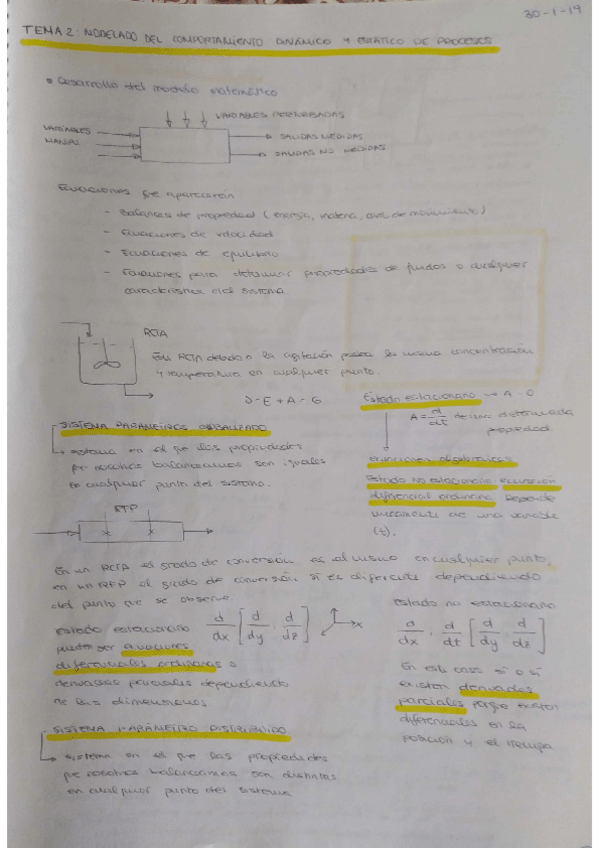 30-1-19
TEMA 2: MODELADO DEL COMPORTAMIENTO DINÁMICO Y ESTÁTICO DE PROCESOS
• Desarrollo del modelo matemático
VARIABLES PERTURBADAS
VARIABLES
MANIP.
SALIDAS MEDIDAS
SALIDAS NO MEDIDAS
Ecuaciones que aparecerán
- Balances de propiedad (energía, materia, cant. de movimiento)
- Ecuaciones de velocidad
- Ecuaciones de equilibrio
- Ecuaciones para determinar propiedades de fluidos o cualquier
característica del sistema
RCTA
RCTA debido a la agitación posea la misma concentración
y temperatura en cualquier punto.
S-E+A=G
Estado estacionario → A=0
A = d/dt de una determinada
propiedad.
SISTEMA PARÁMETROS GLOBALIZADO
sistema en el que las propiedades
que nosotros balanceamos son iguales
en cualquier punto del sistema.
ecuaciones algebraicas
Estado no estacionario: ecuación
diferencial ordinaria. Depende
únicamente de una variable
(t).
RTP
En un RCTA el grado de conversión es el mismo en cualquier punto,
en un RFP el grado de conversión sí es diferente dependiendo
del punto que se observe
estado estacionario
d/dx [d/dy . d/dz]
x
pueden ser ecuaciones
diferenciales ordinarias o
derivadas parciales dependiendo
de las dimensiones
estado no estacionario
d/dx . d/dt [d/dy . d/dz]
En este caso sí o sí
existen derivadas
parciales porque existen
diferenciales en la
posición y el tiempo
SISTEMA PARÁMETRO DISTRIBUIDO
sistema en el que las propiedades
que nosotros balanceamos son distintas
en cualquier punto del sistema